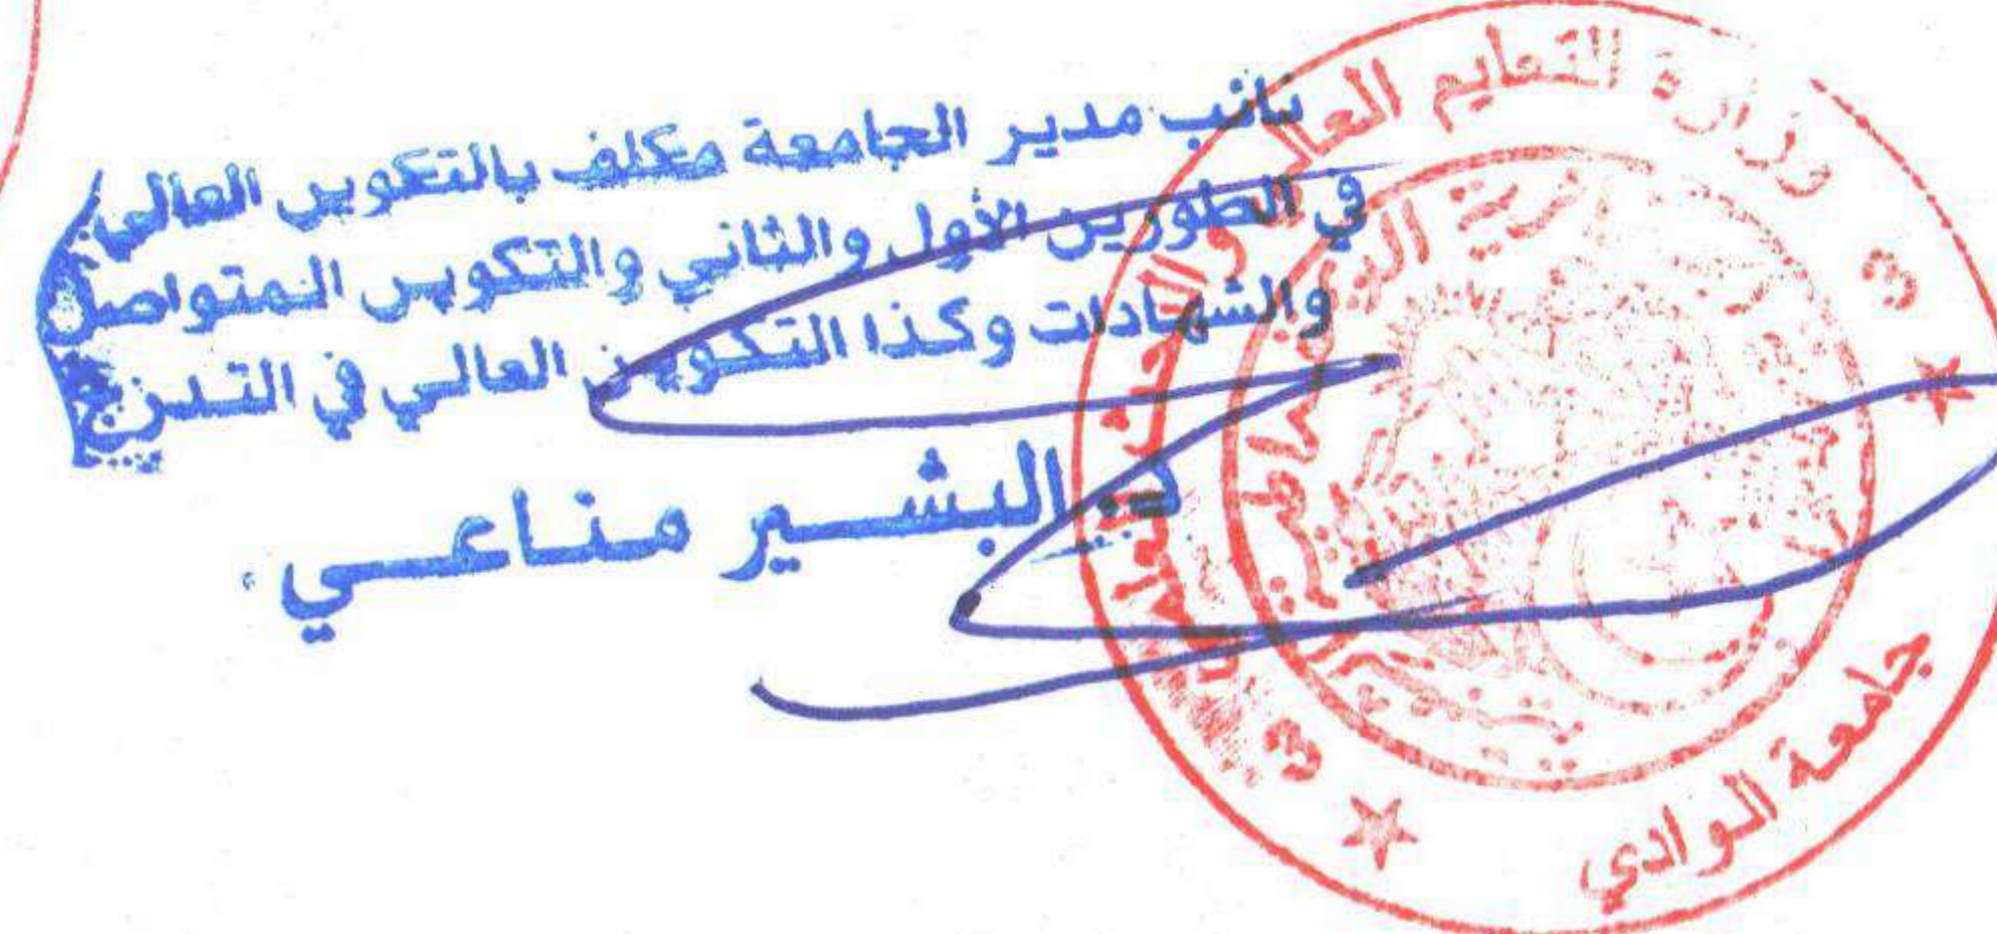 نائب مدير الجامعة مكلف بالتكوين العالي
في الطورين الأول والثاني والتكوين المتواصل
والشهادات وكذا التكوين العالي في التدرج
د. البشير مناعي
وزارة التعليم العالي و البحث العلمي
3
3
جامعة الوادي